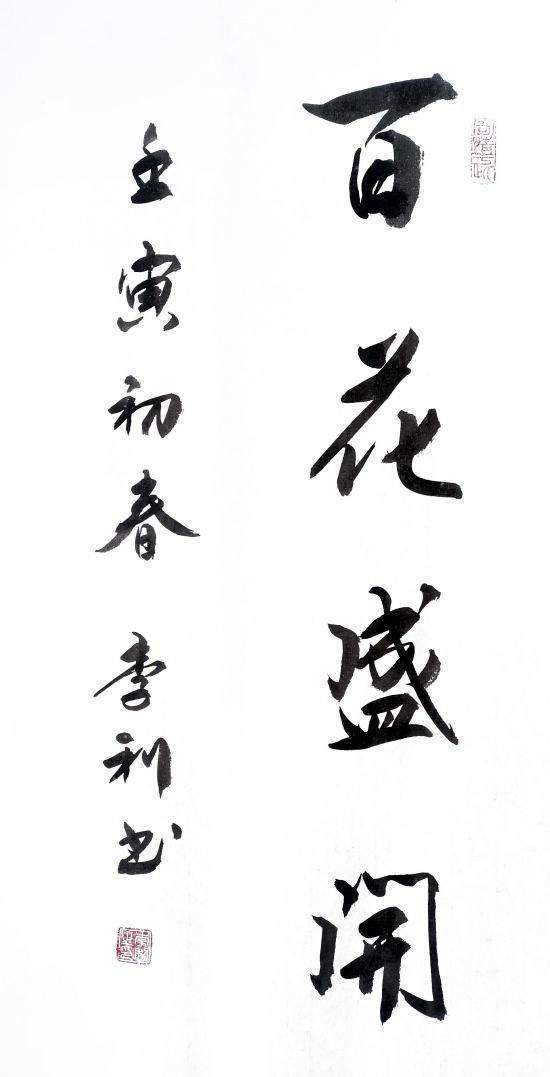 百花盛開
壬寅初春 李利书